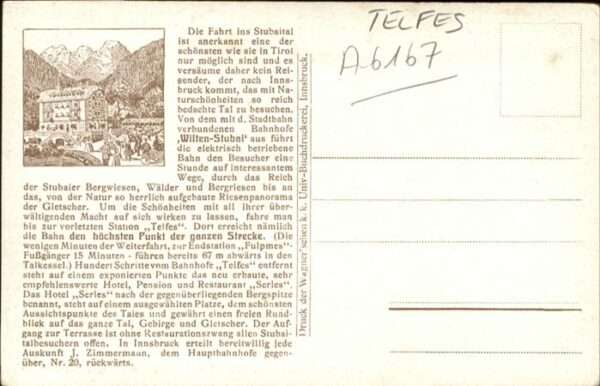 Die Fahrt ins Stubaital
ist anerkannt eine der
schönsten wie sie in Tirol
nur möglich sind und es
versäume daher kein Rei-
sender, der nach Inns-
bruck kommt, das mit Na-
turschönheiten so reich
bedachte Tal zu besuchen.
Von dem mit d. Stadtbahn
verbundenen Bahnhofe
„Wilten-Stubai" aus führt
die elektrisch betriebene
Bahn den Besucher eine
Stunde auf interessantem
Wege, durch das Reich
der Stubaier Bergwiesen, Wälder und Bergriesen bis an
das, von der Natur so herrlich aufgebaute Riesenpanorama
der Gletscher. Um die Schönheiten mit all ihrer über-
wältigenden Macht auf sich wirken zu lassen, fahre man
bis zur vorletzten Station „Telfes". Dort erreicht nämlich
die Bahn den höchsten Punkt der ganzen Strecke. (Die
wenigen Minuten der Weiterfahrt, zur Endstation „Fulpmes"-
Fußgänger 15 Minuten - führen bereits 67 m abwärts in den
Talkessel.) Hundert Schritte vom Bahnhofe „Telfes" entfernt
steht auf einem exponierten Punkte das neu erbaute, sehr
empfehlenswerte Hotel, Pension und Restaurant „Serles".
Das Hotel „Serles" nach der gegenüberliegenden Bergspitze
benannt, steht auf einem ausgewählten Platze, dem schönsten
Aussichtspunkte des Tales und gewährt einen freien Rund-
blick auf das ganze Tal, Gebirge und Gletscher. Der Auf-
gang zur Terrasse ist ohne Restaurationszwang allen Stubai-
talbesuchern offen. In Innsbruck erteilt bereitwillig jede
Auskunft J. Zimmermann, dem Hauptbahnhofe gegen-
über, Nr. 20, rückwärts.
Druck der Wagner'schen k. k. Univ.-Buchdruckerei, Innsbruck.
TELFES
A6167